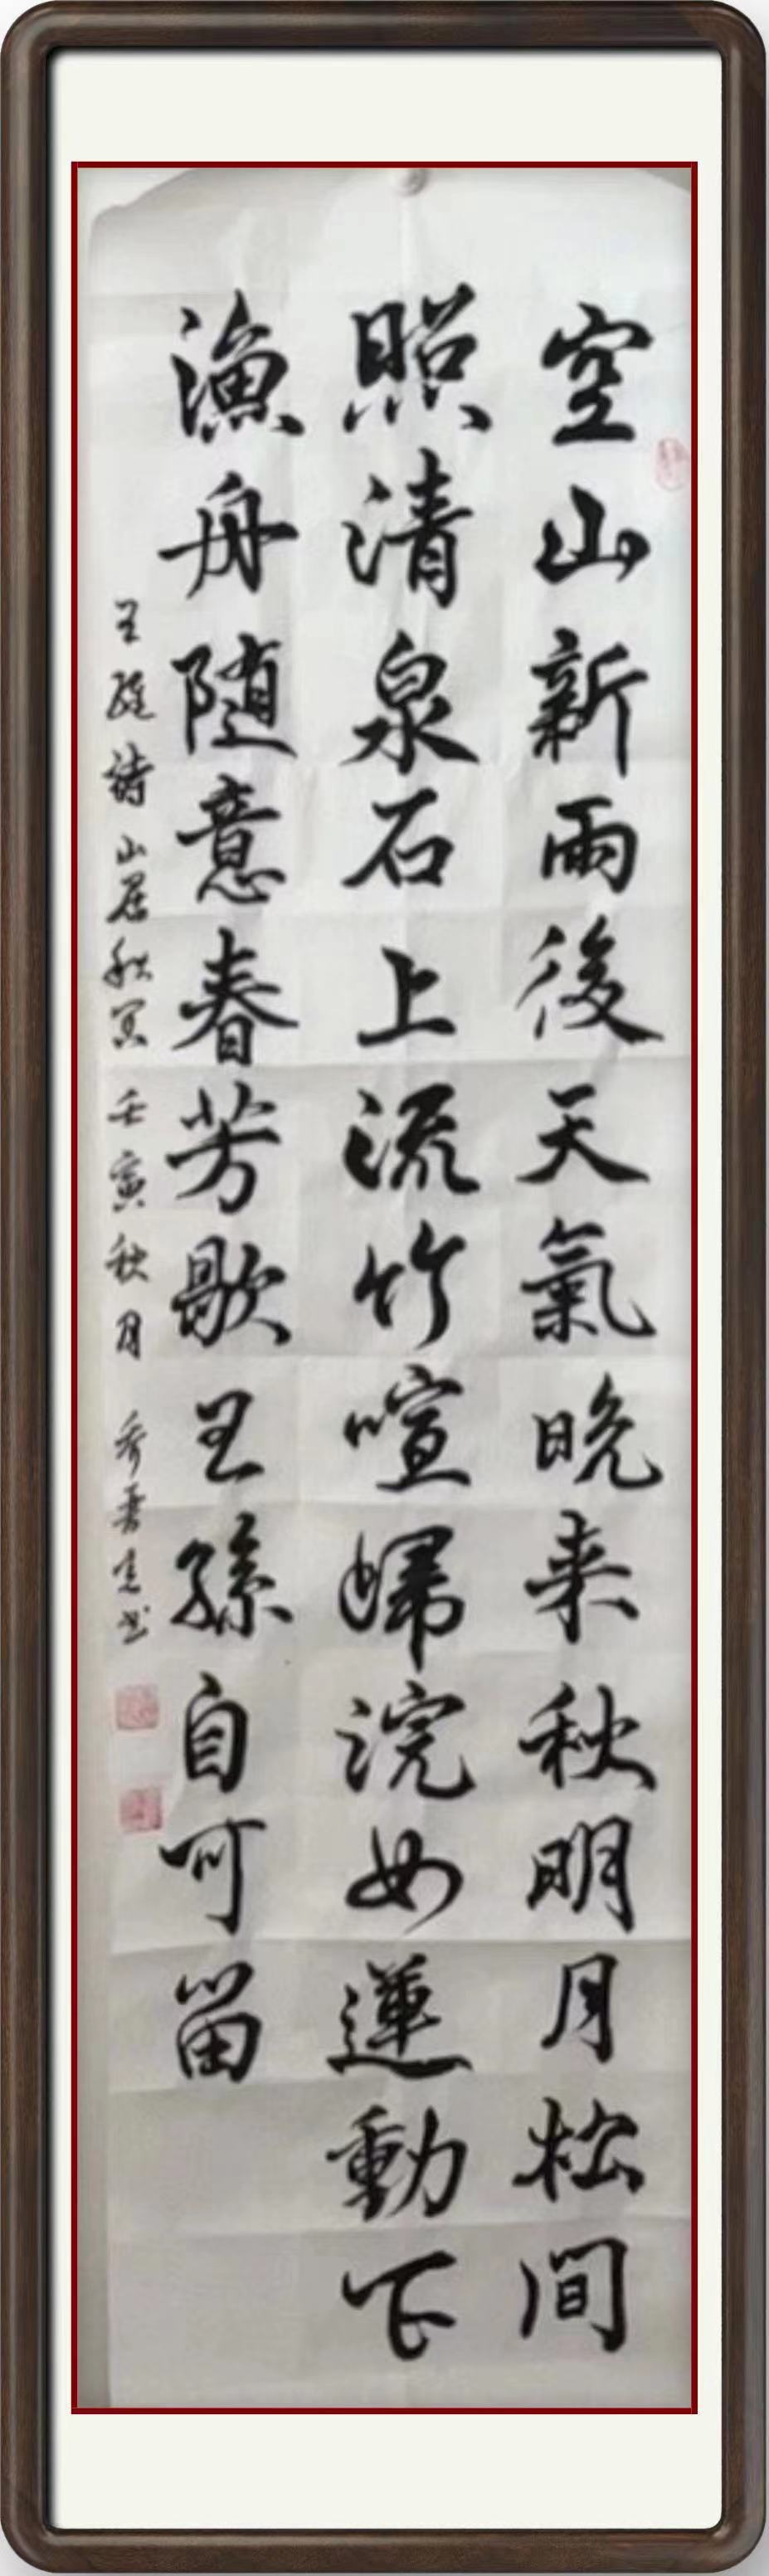 空山新雨後天氣晚来秋明月松間
照清泉石上流竹喧歸浣女蓮動下
漁舟随意春芳歇王孫自可留
王維詩山居秋冥 壬寅秋月 书